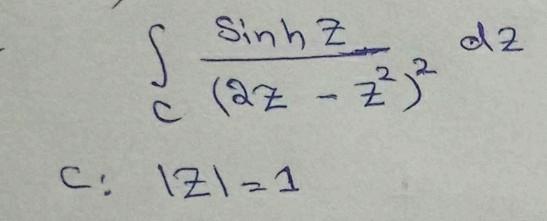 ∫_C Sinh Z / (2Z - Z²)² dZ
C: |Z| = 1